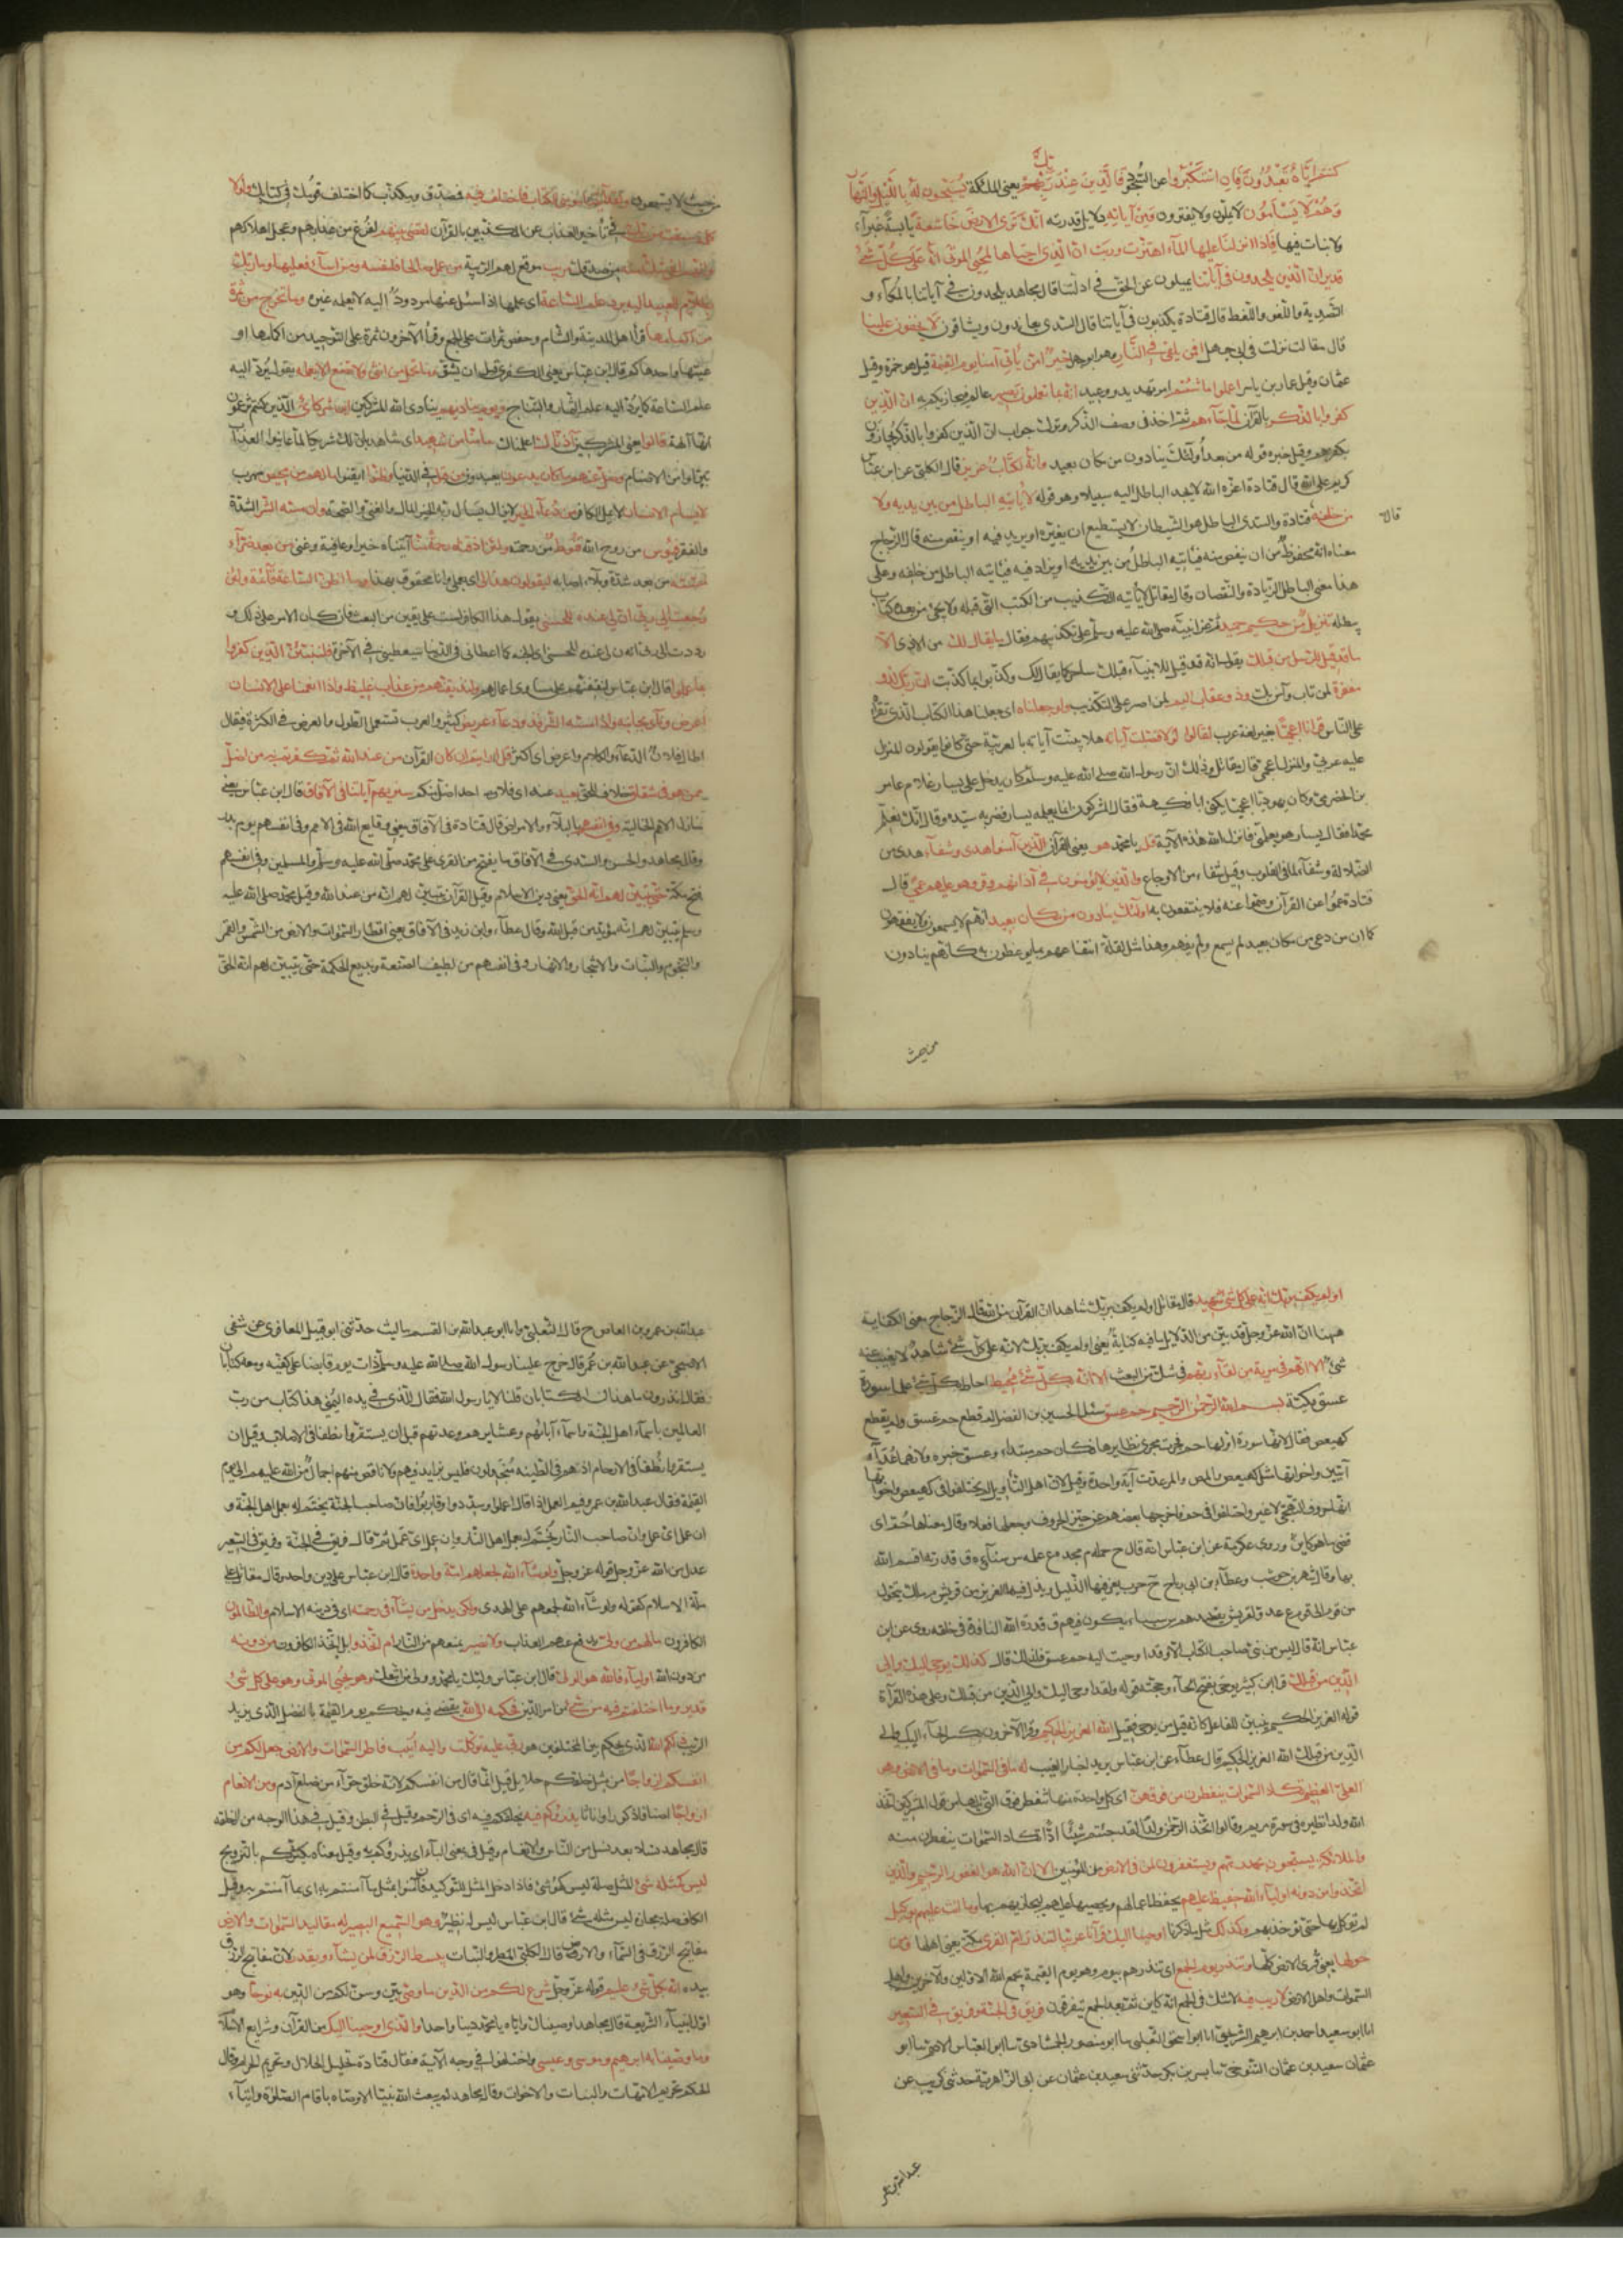 كنتم اياه تعبدون فان استكبروا عن السجود فالذين عند ربك يعني الملائكة يسبحون له بالليل والنهار
وهم لا يسأمون لا يملون ولا يفترون ومن آياته دلايل قدرته انك ترى الارض خاشعة يابسة غبراء
ولا نبات فيها فاذا انزلنا عليها الماء اهتزت وربت ان الذي احياها لمحيي الموتى انه على كل شئ
قدير ان الذين يلحدون في آياتنا يميلون عن الحق في ادلتنا قال مجاهد يلحدون في آياتنا بالمكاء و
التصدية واللغو واللغط قال قتادة يكذبون في آياتنا قال السدي يعاندون ويشاقون لا يخفون علينا
قال مقاتل نزلت في ابي جهل افمن يلقى في النار وهو ابو جهل خير امن يأتي آمنا يوم القيمة قيل هو حمزة وقيل
عثمان وقيل عمار بن ياسر اعملوا ما شئتم امر تهديد ووعيد انه بما تعملون بصير عالم فيجازيكم به ان الذين
كفروا بالذكر بالقرآن لما جاءهم ثم اخذ في وصف الذكر وترك جواب ان الذين كفروا بالذكر يجازون
بكفرهم وقيل خبره قوله من بعد اولئك ينادون من مكان بعيد وانه لكتاب عزيز قال الكلبي عن ابن عباس
كريم على الله قال قتادة اعزه الله لا يجد الباطل اليه سبيلا وهو قوله لا يأتيه الباطل من بين يديه ولا
من خلفه قتادة والسدى الباطل هو الشيطان لا يستطيع ان يغيره او يزيد فيه او ينقص منه قال الزجاج
قال
معناه انه محفوظ من ان ينقص منه فيأتيه الباطل من بين يديه او يزاد فيه فيأتيه الباطل من خلفه وعلى
هذا معنى الباطل الزيادة والنقصان وقال مقاتل لا يأتيه التكذيب من الكتب التي قبله ولا يجئ من بعده كتاب
يبطله تنزيل من حكيم حميد ثم عزا نبيه صلى الله عليه وسلم على تكذيبهم فقال ما يقال لك من الاذى الا
ما قد قيل للرسل من قبلك يقول انه قد قيل للانبياء قبلك ساحر كما يقال لك وكذبوا كما كذبت ان ربك لذو
مغفرة لمن تاب وآمن بك وذو عقاب اليم لمن اصر على التكذيب ولو جعلناه اي جعلنا هذا الكتاب الذي تقرأه
على الناس قرآنا اعجميا بغير لغة عرب لقالوا لولا فصلت آياته هلا بينت آياته بالعربية حتى
عليه عربي والمنزل اعجمي قال مقاتل وذلك ان رسول الله صلى الله عليه وسلم كان يدخل على يسار غلام عامر
بن الحضرمي وكان يهوديا اعجميا يكنى ابا فكيهة فقال المشركون انما يعلمه يسار فضربه سيده وقال انك تعلم
محمدا فقال يسار هو يعلمني فانزل الله هذه الآية قل يا محمد هو يعني القرآن للذين آمنوا هدى وشفاء هدى من
الضلالة وشفاء لما في القلوب وقيل شفاء من الاوجاع والذين لا يؤمنون في آذانهم وقر وهو عليهم عمى قال
قتادة عموا عن القرآن وصموا عنه فلا ينتفعون به اولئك ينادون من مكان بعيد انهم لا يسمعون ولا يفهمون
كما ان من دعى من مكان بعيد لم يسمع ولم يفهم وهذا مثل لقلة انتفاعهم بما يوعظون به كأنهم ينادون
من حيث
من حيث لا يسمعون ولقد آتينا موسى الكتاب فاختلف فيه فمصدق ومكذب كما اختلف قومك في كتابك ولولا
كلمة سبقت من ربك في تأخير العذاب عن المكذبين بالقرآن لقضي بينهم لفرغ من عذابهم وعجل اهلاكهم
وانهم لفي شك منه من صدقك مريب موقع لهم الريبة من عمل صالحا فلنفسه ومن اساء فعليها وما ربك
بظلام للعبيد اليه يرد علم الساعة اي علمها اذا سئل عنها مردود اليه لا يعلمه غيره وما تخرج من ثمرة
من اكمامها قرأ اهل المدينة والشام وحفص ثمرات على الجمع وقرأ الآخرون ثمرة على التوحيد من اكمامها او
عيتها واحدها كم قال ابن عباس يعني الكفرى قبل ان ينشق وما تحمل من انثى ولا تضع الا بعلمه يقول يرد اليه
علم الساعة كما يرد اليه علم الثمار والنتاج ويوم يناديهم ينادي الله المشركين اين شركائي الذين كنتم تزعمون
انها آلهة قالوا يعني المشركين آذناك اعلمناك ما منا من شهيد اي شاهد بان لك شريكا لما عاينوا العذاب
تبرأوا من الاصنام وضل عنهم ما كانوا يدعون يعبدون من قبل في الدنيا وظنوا ايقنوا ما لهم من محيص مهرب
لا يسأم الانسان لا يمل الكافر من دعاء الخير لا يزال يسأل ربه الخير المال والغنى والصحة وان مسه الشر الشدة
والفقر فيؤس من روح الله قنوط من رحمته ولئن اذقناه رحمة منا آتيناه خيرا وعافية وغنى من بعد ضراء
مسته من بعد شدة وبلاء اصابه ليقولن هذا لي اي بعملي وانا محقوق بهذا وما اظن الساعة قائمة ولئن
رجعت الى ربي ان لي عنده للحسنى يقول هذا الكافر لست على يقين من البعث فان كان الامر على ذلك و
رددت الى ربي ان لي عنده للحسنى اي الجنة كما اعطاني في الدنيا سيعطيني في الآخرة فلننبئن الذين كفروا
بما عملوا قال ابن عباس لنقفنهم على مساوي اعمالهم ولنذيقنهم من عذاب غليظ واذا انعمنا على الانسان
اعرض ونأى بجانبه واذا مسه الشر فذو دعاء عريض كثير والعرب تستعمل الطول والعرض في الكثرة فيقال
اطال فلان الدعاء والكلام واعرض اي اكثر قل ارأيتم ان كان القرآن من عند الله ثم كفرتم به من اضل
ممن هو في شقاق خلاف للحق بعيد عنه اي فلا احد اضل منكم سنريهم آياتنا في الآفاق قال ابن عباس يعني
منازل الامم الخالية وفي انفسهم بالبلاء والامراض قال قتادة في الآفاق يعني وقايع الله في الامم وفي انفسهم يوم بدر
وقال مجاهد والحسن والسدى في الآفاق ما يفتح من القرى على محمد صلى الله عليه وسلم والمسلمين وفي انفسهم
فتح مكة حتى يتبين لهم انه الحق يعني دين الاسلام وقيل القرآن يتبين لهم انه من عند الله وقيل محمد صلى الله عليه
وسلم يتبين لهم انه مؤيد من قبل الله وقال عطاء وابن زيد في الآفاق يعني اقطار السموات والارض من الشمس والقمر
والنجوم والنبات والاشجار والانهار وفي انفسهم من لطيف الصنعة وبديع الحكمة حتى يتبين لهم انه الحق
اولم يكف بربك انه على كل شئ شهيد قال مقاتل اولم يكف بربك شاهدا ان القرآن من الله قال الزجاج معنى الكفاية
ههنا ان الله عز وجل قد بين من الدلايل ما فيه كفاية يعني اولم يكف بربك لانه على كل شئ شاهد لا يغيب عنه
شئ الا انهم في مرية من لقاء ربهم في شك من البعث الا انه بكل شئ محيط احاط بكل شئ علما سورة
عسق مكية بسم الله الرحمن الرحيم حم عسق سئل الحسين بن الفضل لم قطع حم عسق ولم يقطع
كهيعص فقال لانها سورة اولها حم فجرت مجرى نظايرها فكان حم مبتداء وعسق خبره ولانهما عدا
آيتين واخواتها مثل كهيعص والمص والمر عدت آية واحدة وقيل لان اهل التأويل لم يختلفوا في كهيعص واخواتها
انها حروف التهجي لا غير واختلفوا في حم فاخرجها بعضهم عن حيز الحروف وجعلها فعلا وقال معناها حم اي
قضى ما هو كاين وروى عكرمة عن ابن عباس انه قال ح حلمه م مجده ع علمه س سناؤه ق قدرته اقسم الله
بها وقال شهر بن حوشب وعطاء بن ابي رباح ح حرب يعز فيها الذليل ويذل فيها العزيز من قريش م ملك يتحول
من قوم الى قوم ع عدو لقريش يقصدهم س سيء يكون فيهم ق قدرة الله النافذة في خلقه روى عن ابن
عباس انه قال ليس من نبي صاحب كتاب الا وقد اوحيت اليه حم عسق فلذلك قال كذلك يوحي اليك والى
الذين من قبلك قرأ ابن كثير يوحى بفتح الحاء وحجته قوله ولقد اوحى اليك والى الذين من قبلك وعلى هذه القرآة
قوله العزيز الحكيم تبيين للفاعل كأنه قيل من يوحى فقيل الله العزيز الحكيم وقرأ الآخرون بكسر الحاء اليك والى
الذين من قبلك الله العزيز الحكيم قال عطاء عن ابن عباس يريد اخبار الغيب له ما في السموات وما في الارض وهو
العلي العظيم تكاد السموات يتفطرن من فوقهن اي كل واحدة منها تتفطر فوق التي تليها من قول المشركين اتخذ
الله ولدا نظيره في سورة مريم وقالوا اتخذ الرحمن ولدا لقد جئتم شيئا ادا تكاد السموات يتفطرن منه
والملائكة يسبحون بحمد ربهم ويستغفرون لمن في الارض من المؤمنين الا ان الله هو الغفور الرحيم والذين
اتخذوا من دونه اولياء الله حفيظ عليهم يحفظ اعمالهم ويحصيها عليهم ليجازيهم بها وما انت عليهم بوكيل
لم توكل بها حتى تؤخذ بهم وكذلك مثل ما ذكرنا اوحينا اليك قرآنا عربيا لتنذر ام القرى مكة يعني اهلها ومن
حولها يعني قرى الارض كلها وتنذر يوم الجمع اي تنذرهم بيوم وهو يوم القيمة يجمع الله الاولين والآخرين واهل
السموات واهل الارض لا ريب فيه لا شك في الجمع انه كاين ثم بعد الجمع يتفرقون فريق في الجنة وفريق في السعير
انا ابو سعيد احمد بن ابرهيم الشريحي انا ابو اسحق الثعلبي ثنا ابو منصور الحمشادي ثنا ابو العباس الاصم ثنا ابو
عثمان سعيد بن عثمان التنوخي ثنا بشر بن بكر حدثني سعيد بن عثمان عن ابي الزاهرية حدثني كريب عن
عبد الله بن عمر
عبد الله بن عمرو بن العاص ح قال الثعلبي وانا ابو عبد الله بن القسم ثنا ليث حدثني ابو قبيل المعافري عن شفي
الاصبحي عن عبد الله بن عمر قال خرج علينا رسول الله صلى الله عليه وسلم ذات يوم قابضا على كفيه ومعه كتابان
فقال اتدرون ما هذان الكتابان قلنا لا يا رسول الله فقال للذي في يده اليمنى هذا كتاب من رب
العالمين باسماء اهل الجنة واسماء آبائهم وعشايرهم وعدتهم قبل ان يستقروا نطفا في الاصلاب وقبل ان
يستقروا نطفا في الارحام اذ هم في الطينة منجدلون فليس بزايد فيهم ولا ناقص منهم اجمال من الله عليهم الى يوم
القيمة فقال عبد الله بن عمرو ففيم العمل اذا قال اعملوا وسددوا وقاربوا فان صاحب الجنة يختم له بعمل اهل الجنة و
ان عمل اي عمل وان صاحب النار يختم له بعمل اهل النار وان عمل اي عمل ثم قال فريق في الجنة وفريق في السعير
عدل من الله عز وجل قوله عز وجل ولو شاء الله لجعلهم امة واحدة قال ابن عباس على دين واحد وقال مقاتل على
ملة الاسلام كقوله ولو شاء الله لجمعهم على الهدى ولكن يدخل من يشاء في رحمته اي في دينه الاسلام والظالمون
الكافرون ما لهم من ولي يدفع عنهم العذاب ولا نصير يمنعهم من النار ام اتخذوا بل اتخذ الكافرون من دونه
من دون الله اولياء فالله هو الولي قال ابن عباس وليك يا محمد وولي من اتبعك وهو يحيي الموتى وهو على كل شئ
قدير وما اختلفتم فيه من شئ من امر الدين فحكمه الى الله يقضي فيه ويحكم يوم القيمة بالفصل الذي يزيل
الريب ذلكم الله الذي يحكم بين المختلفين هو ربي عليه توكلت واليه انيب فاطر السموات والارض جعل لكم من
انفسكم ازواجا من مثل خلقكم حلايل قيل انما قال من انفسكم لانه خلق حواء من ضلع آدم ومن الانعام
ازواجا اصنافا ذكورا واناثا يذرؤكم فيه يخلقكم فيه اي في الرحم وقيل في البطن وقيل في هذا الوجه من الخلقة
قال مجاهد نسلا بعد نسل من الناس والانعام وقيل في بمعنى الباء اي يذرؤكم به وقيل معناه يكثركم بالتزويج
ليس كمثله شئ المثل صلة ليس كهو شئ فادخل المثل للتوكيد فان آمنوا بمثل ما آمنتم به اي بما آمنتم به وقيل
الكاف صلة مجازه ليس مثله شئ قال ابن عباس ليس له نظير وهو السميع البصير له مقاليد السموات والارض
مفاتيح الرزق في السماء والارض قال الكلبي المطر والنبات يبسط الرزق لمن يشاء ويقدر لان مفاتيح الرزق
بيده انه بكل شئ عليم قوله عز وجل شرع لكم من الدين ما وصى بين وسن لكم من الدين به نوحا وهو
اول انبياء الشريعة قال مجاهد اوصيناك واياه يا محمد دينا واحدا والذي اوحينا اليك من القرآن وشرايع الاسلام
وما وصينا به ابرهيم وموسى وعيسى واختلفوا في وجه الآية فقال قتادة تحليل الحلال وتحريم الحرام وقال
الحكم تحريم الامهات والبنات والاخوات وقال مجاهد لم يبعث الله نبيا الا وصاه باقام الصلوة وايتاء